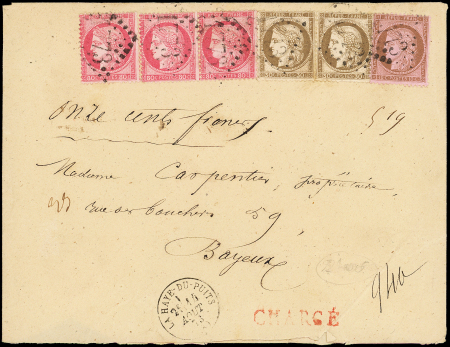 REPUB. FRANC.
Onze cents francs
519
Madame Carpentier, propriétaire,
rue des Bouchers 59
Bayeux
LA HAYE-DU-PUITS
AOUT
CHARGÉ
940